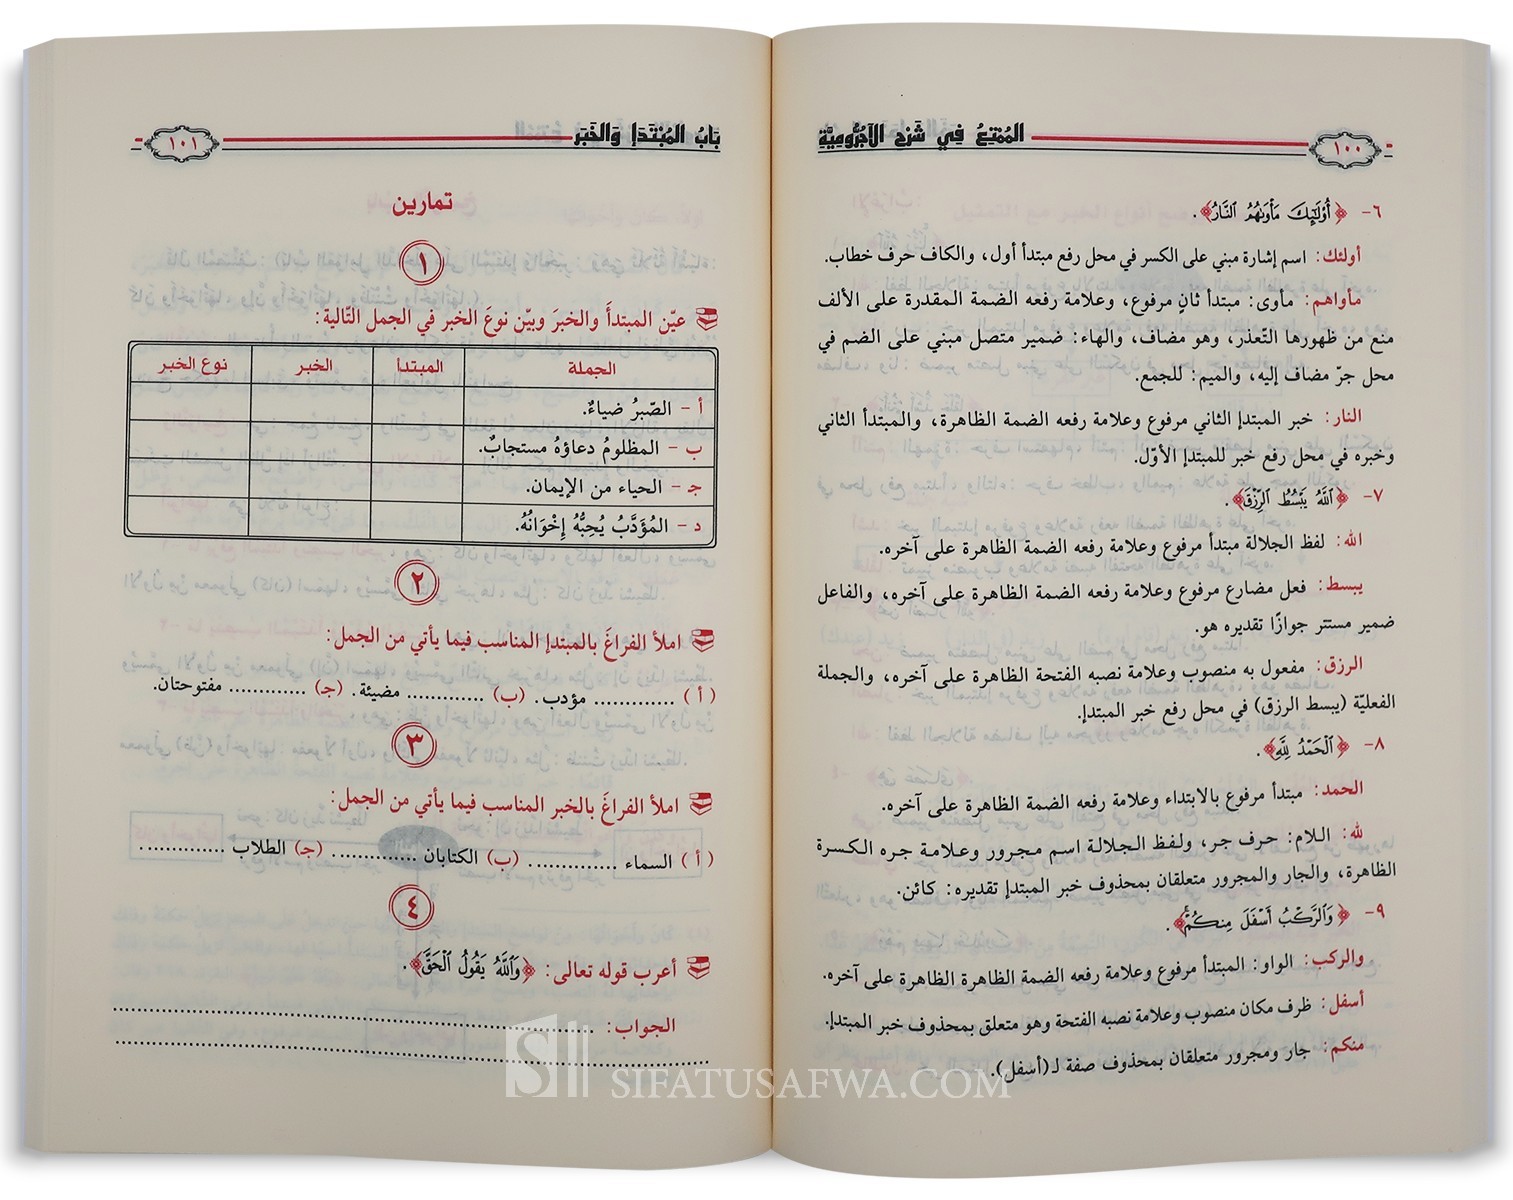 الممْتِعُ فِي شَرْحِ الآجُرُّومِيَّةِ
١٠٠
٦- ﴿أُوْلَٰٓئِكَ مَأْوَىٰهُمُ ٱلنَّارُ﴾.
أولئك: اسم إشارة مبني على الكسر في محل رفع مبتدأ أول، والكاف حرف خطاب.
مأواهم: مأوى: مبتدأ ثانٍ مرفوع، وعلامة رفعه الضمة المقدرة على الألف
منع من ظهورها التّعذر، وهو مضاف، والهاء: ضمير متصل مبني على الضم في
محل جرّ مضاف إليه، والميم: للجمع.
النار: خبر المبتدإ الثاني مرفوع وعلامة رفعه الضمة الظاهرة، والمبتدأ الثاني
وخبره في محل رفع خبر للمبتدإ الأوّل.
٧- ﴿ٱللَّهُ يَبْسُطُ ٱلرِّزْقَ﴾.
الله: لفظ الجلالة مبتدأ مرفوع وعلامة رفعه الضمة الظاهرة على آخره.
يبسط: فعل مضارع مرفوع وعلامة رفعه الضمة الظاهرة على آخره، والفاعل
ضمير مستتر جوازًا تقديره هو.
الرزق: مفعول به منصوب وعلامة نصبه الفتحة الظاهرة على آخره، والجملة
الفعليّة (يبسط الرزق) في محل رفع خبر المبتدإ.
٨- ﴿ٱلْحَمْدُ لِلَّهِ﴾.
الحمد: مبتدأ مرفوع بالابتداء وعلامة رفعه الضمة الظاهرة على آخره.
لله: اللام: حرف جر، ولفظ الجلالة اسم مجرور وعلامة جره الكسرة
الظاهرة، والجار والمجرور متعلقان بمحذوف خبر المبتدإ تقديره: كائن.
٩- ﴿وَٱلرَّكْبُ أَسْفَلَ مِنكُمْ﴾.
والركب: الواو: المبتدأ مرفوع وعلامة رفعه الضمة الظاهرة الظاهرة على آخره.
أسفل: ظرف مكان منصوب وعلامة نصبه الفتحة وهو متعلق بمحذوف خبر المبتدإ.
منكم: جار ومجرور متعلقان بمحذوف صفة لـ(أسفل).
بَابُ المُبْتَدَإِ وَالخَبَرِ
١٠١
تمارين
١
عيّن المبتدأ والخبرَ وبيّن نوعَ الخبر في الجمل التّالية:
الجملة المبتدأ الخبر نوع الخبر
أ - الصّبرُ ضياءٌ.
ب - المظلومُ دعاؤهُ مستجابٌ.
جـ - الحياء من الإيمان.
د - المُؤَدَّبُ يُحِبُّهُ إِخْوَانُهُ.
٢
املأ الفراغَ بالمبتدإ المناسب فيما يأتي من الجمل:
(أ) ............. مؤدب. (ب) ............ مضيئة. (جـ) ............ مفتوحتان.
٣
املأ الفراغَ بالخبر المناسب فيما يأتي من الجمل:
(أ) السماء ............. (ب) الكتابان ............. (جـ) الطلاب .............
٤
أعرب قوله تعالى: ﴿وَٱللَّهُ يَقُولُ ٱلْحَقَّ﴾.
الجواب: ......................................................
......................................................
SIFATUSAFWA.COM